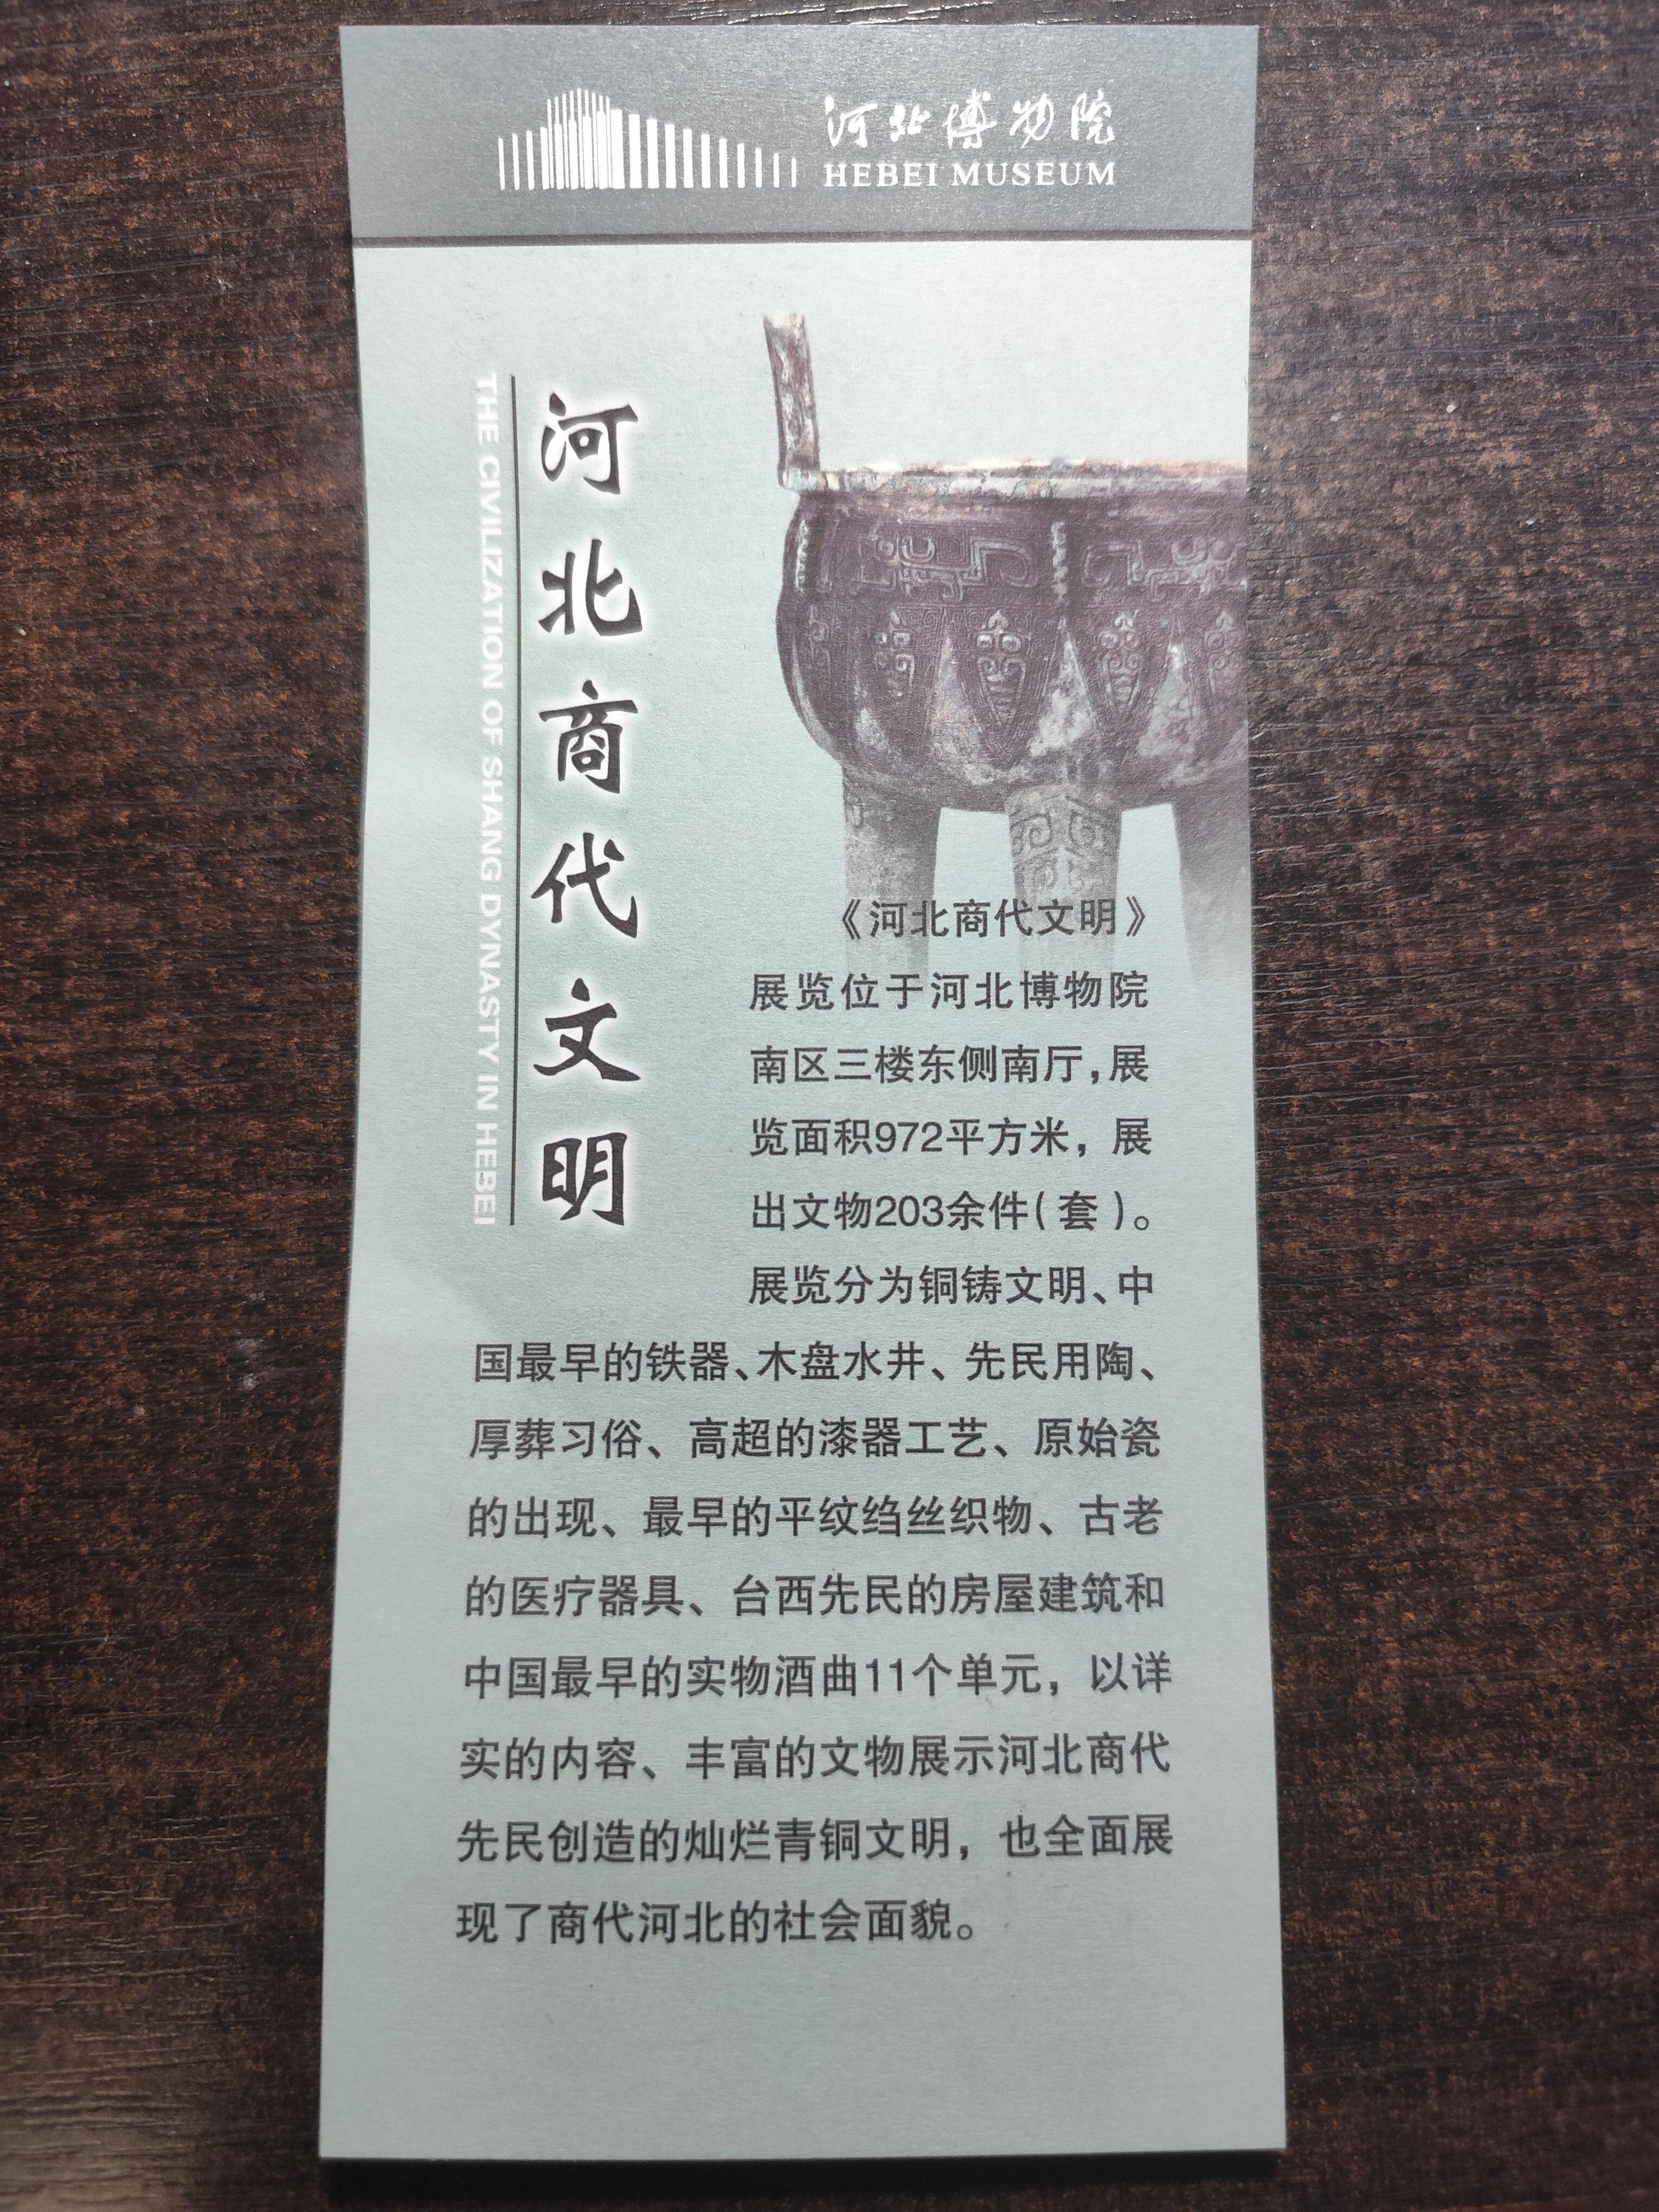 河北博物院
HEBEI MUSEUM
河北商代文明
THE CIVILIZATION OF SHANG DYNASTY IN HEBEI
《河北商代文明》
展览位于河北博物院
南区三楼东侧南厅，展
览面积972平方米，展
出文物203余件（套）。
展览分为铜铸文明、中
国最早的铁器、木盘水井、先民用陶、
厚葬习俗、高超的漆器工艺、原始瓷
的出现、最早的平纹绉丝织物、古老
的医疗器具、台西先民的房屋建筑和
中国最早的实物酒曲11个单元，以详
实的内容、丰富的文物展示河北商代
先民创造的灿烂青铜文明，也全面展
现了商代河北的社会面貌。